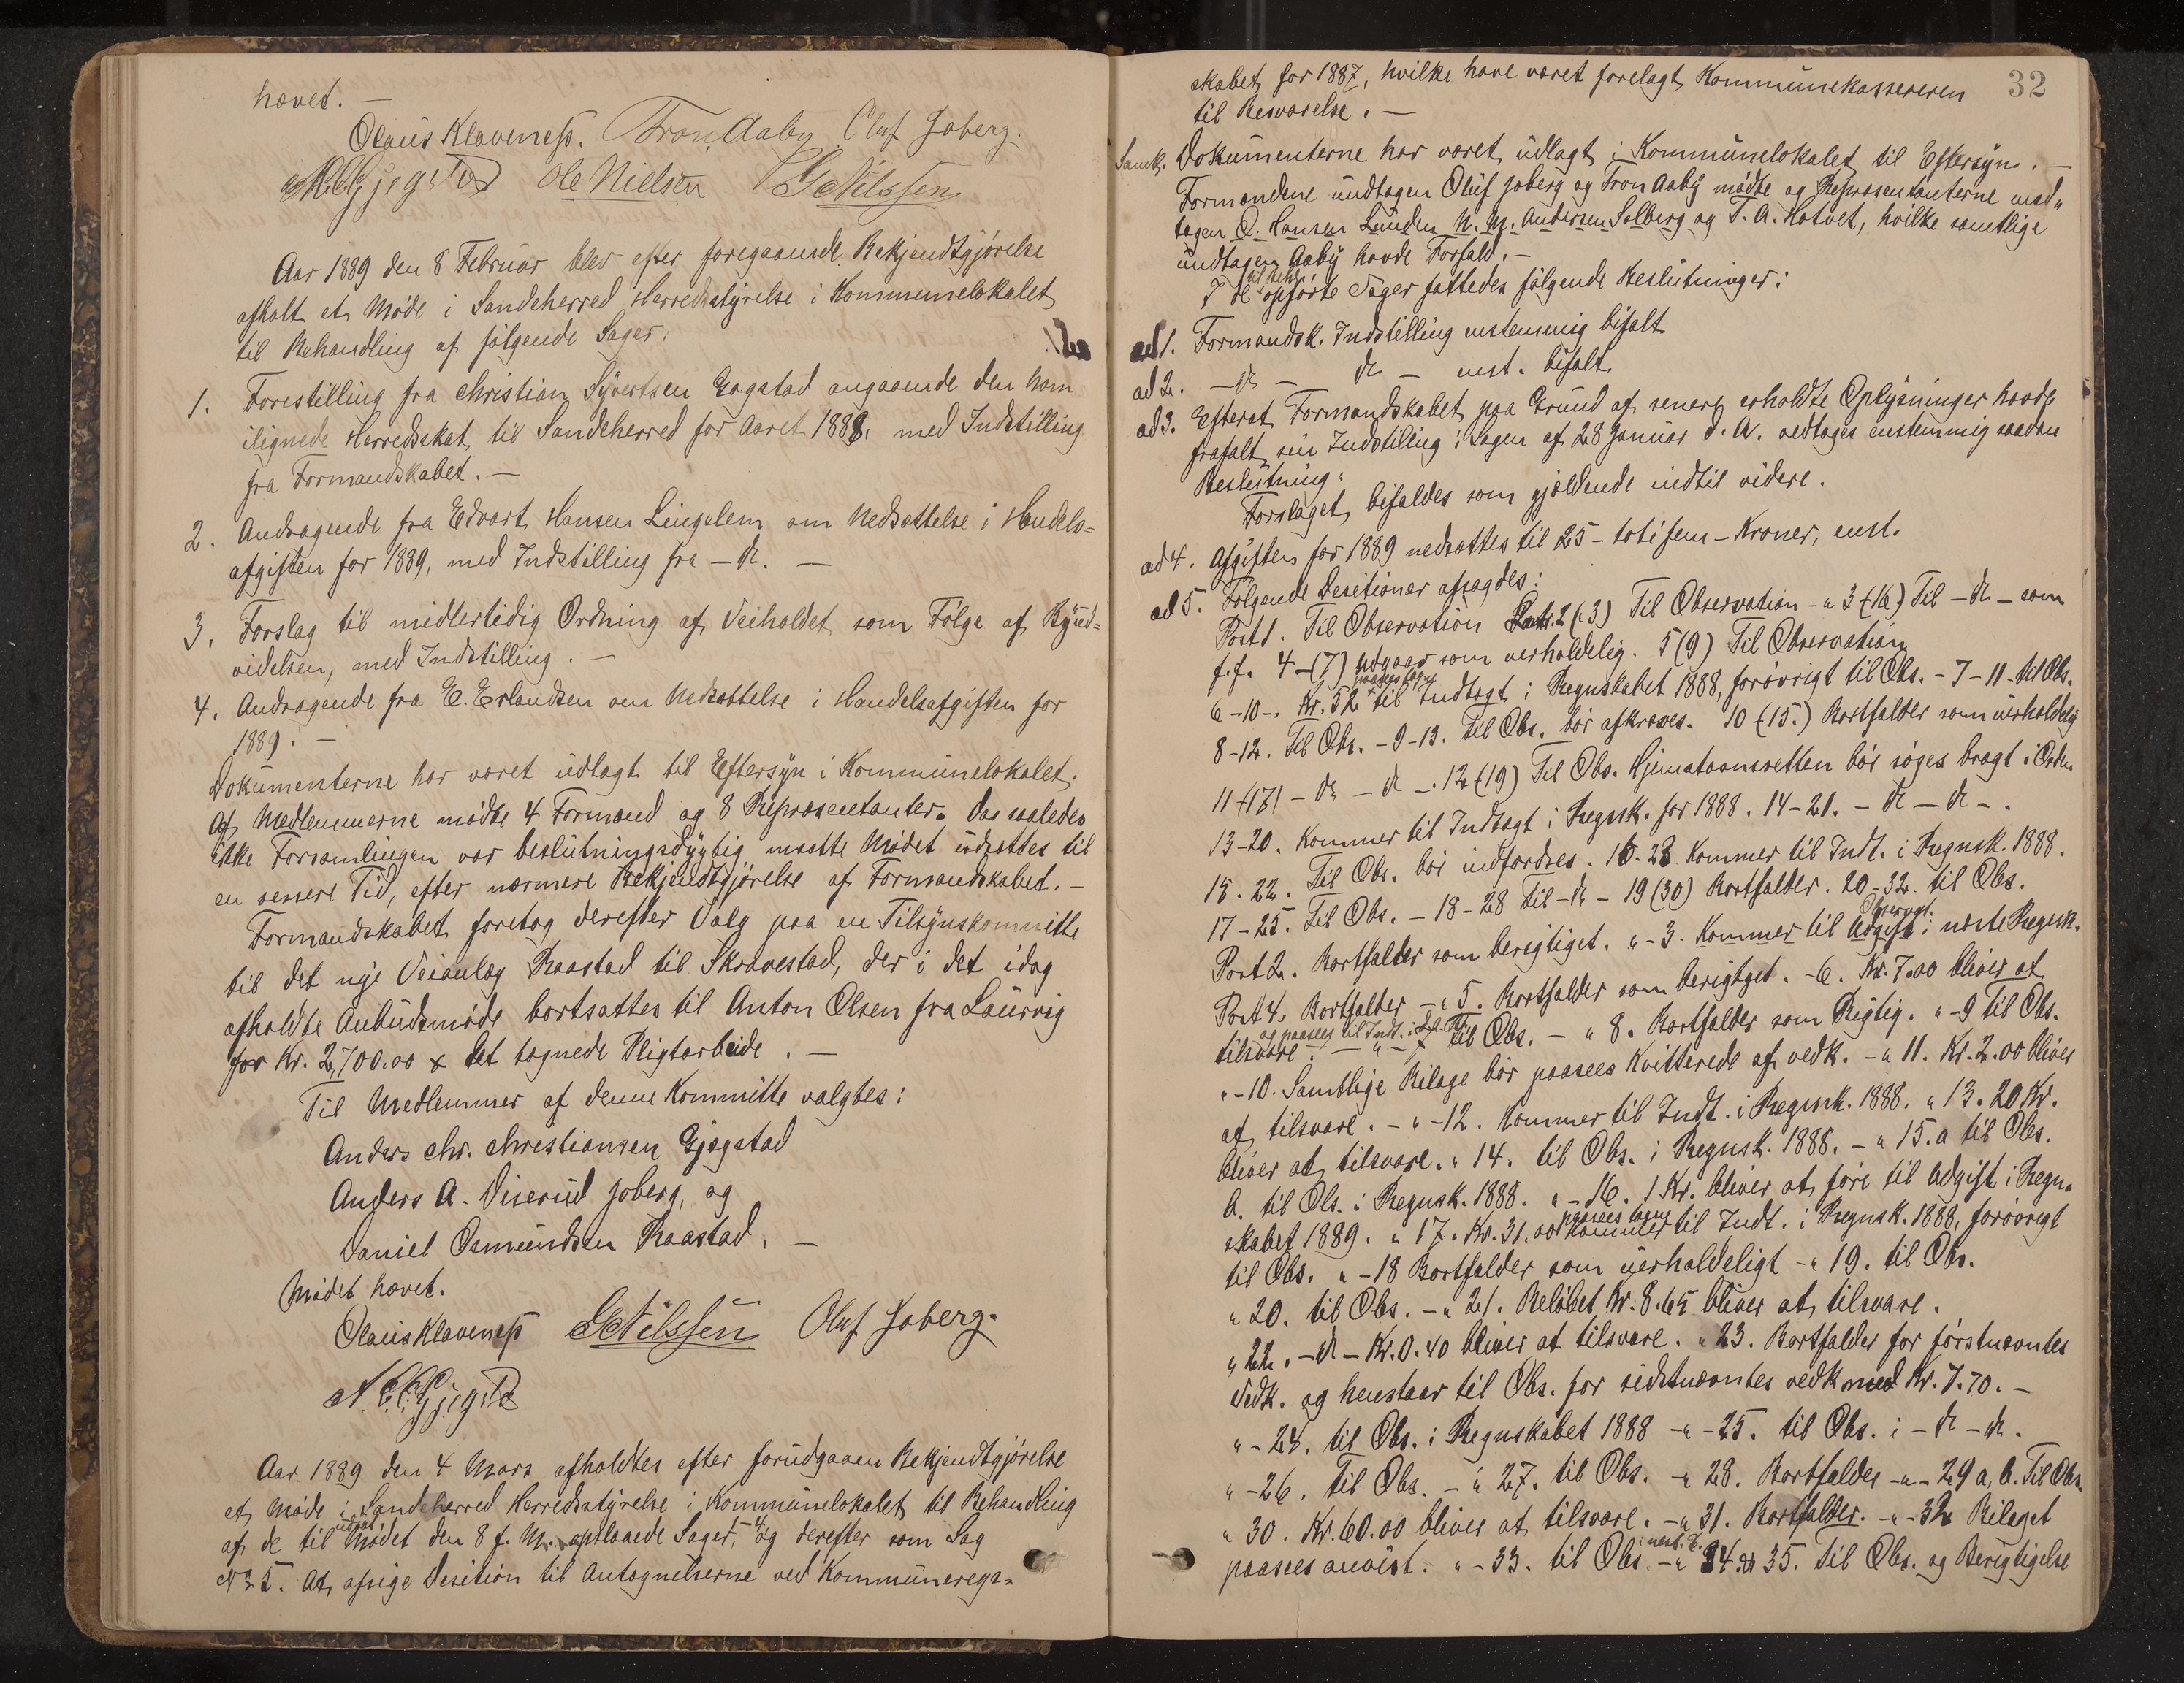 hævet. —
Olaus Klaveness. Tron Aaby Oluf Joberg.
Ole Nielsen G Nilssen
Aar 1889 den 8 Februar blev efter foregaaende Bekjendtgjørelse
afholt et Møde i Sandeherred Herredsstyrelse i Kommunelokalet
til Behandling af følgende Sager:
1. Forestilling fra Christian Syvertsen Gogstad angaaende den ham
ilignede Herredsskat til Sandeherred for Aaret 1888. med Indstilling
fra Formandskabet. —
2. Andragende fra Edvart Hansen Lingelem om Nedsættelse i Handels=
afgiften for 1889, med Indstilling fra — do. —
3. Forslag til midlertidig Ordning af Veiholdet som Følge af Byud=
videlsen, med Indstilling. —
4. Andragende fra E. Erlandsen om Nedsættelse i Handelsafgiften for
1889. —
Dokumenterne har været udlagt til Eftersyn i Kommunelokalet.
Af Medlemmerne mødte 4 Formænd og 8 Repræsentanter. Da saaledes
ikke Forsamlingen var beslutningsdygtig maatte Mødet udsættes til
en senere Tid, efter nærmere Bekjendtgjørelse af Formandskabet. —
Formandskabet foretog derefter Valg paa en Tilsynskommitte
til det nye Veianlæg Raastad til Skravestad, der i det idag
afholdte Anbudsmøde bortsattes til Anton Olsen fra Laurvig
for Kr. 2,700.00 + det tegnede Pligtarbeide. —
Til Medlemmer af denne Kommitte valgtes:
Anders Chr. Christiansen Gjøgstad
Anders A. Viserud Joberg, og
Daniel Osmundsen Raastad. —
Mødet hævet.
Olaus Klaveness G Nilssen Oluf Joberg.
Aar 1889 den 4 Mars afholdtes efter forudgaaen Bekjendtgjørelse
et Møde i Sandeherred Herredsstyrelse i Kommunelokalet til Behandling
af de til Mødet den 8 f. M. opslaaede Sager, 1-4 og derefter som Sag
No 5. At afsige Desition til Antegnelserne ved Kommuneregn=
32
skabet for 1887, hvilke have været forelagt Kommunekassereren
til Besvarelse. —
Samtl. Dokumenterne har været udlagt i Kommunelokalet til Eftersyn. —
Formændene undtagen Oluf Joberg og Tron Aaby mødte og Repræsentanterne und„
tagen O. Hansen Lunden N. M. Andersen Solberg og T. A. Hotvet, hvilke samtlige
undtagen Aaby havde Forfald. —
I de til Beh. opførte Sager fattedes følgende Beslutninger:
ad 1. Formandsk. Indstilling enstemmig bifalt
ad 2. — do — do — enst. bifalt
ad 3. Efterat Formandskabet paa Grund af senere erholdte Oplysninger havde
frafalt sin Indstilling i Sagen af 28 Januar d. A. vedtages enstemmig saadan
Beslutning:
Forslaget bifaldes som gjældende indtil videre.
ad 4. Afgiften for 1889 nedsættes til 25 - totifem - Kroner, enst.
ad 5. Følgende Desitioner afsagdes:
Post 1. Til Observation 2 (3) Til Observation - „ 3 (16) Til — do — som
f.f. 4 - (7) Udgaar som uerholdelig. 5 (9) Til Observation
6 - 10 -. Kr. 52 paasees tagne til Indtægt i Regnskabet 1888, forøvrigt til Obs. - 7 - 11 - til Obs.
8 - 12. Til Obs. - 9 - 13. Til Obs. bør afkræves. 10 (15.) Bortfalder som uerholdelig
11 (17) — do — do —. 12 (19) Til Obs. Hjemstavnsretten bør søges bragt i Orden
13-20. Kommer til Indtægt i Regnsk. for 1888. 14-21. — do — do —.
15. 22. Til Obs. bør indfordres. 16. 23 Kommer til Indt. i Regnsk. 1888.
17-25. Til Obs. — 18-28 Til — do — 19 (30) Bortfalder. 20-32. til Obs.
Post 2. Bortfalder som berigtiget. „ - 3. Kommer til Observat. i næste Regnsk.
Post 4. Bortfalder — „ 5. Bortfalder som berigtiget. - 6. Kr. 7.00 bliver at
tilsvare og paasees til Indt. — „ - 7 til Obs. — „ 8. Bortfalder som Rigtig. „ - 9 til Obs.
„ - 10. Samtlige Bilage bør paasees Kvitterede af vedk. — „ 11. Kr. 2.00 bliver
at tilsvare. — „ - 12. Kommer til Indt. i Regnsk. 1888. „ 13. 20 Kr.
bliver at tilsvare. „ 14. til Obs. i Regnsk. 1888. — „ 15. a til Obs.
b. til Obs. i Regnsk. 1888. „ - 16. 1 Kr. bliver at føre til Udgift i Regn„
skabet 1889. „ 17. Kr. 31.00 paasees tagne til Indt. i Regnsk. 1888, forøvrigt
til Obs. „ - 18 Bortfalder som uerholdeligt - „ 19. til Obs.
„ 20. til Obs. — „ 21. Beløbet Kr. 8.65 bliver at tilsvare.
„ 22. — do — Kr. 0.40 bliver at tilsvare. „ 23. Bortfalder for førstnævntes
Vedk. og henstaar til Obs. for sidstnævntes vedk med Kr. 7.70. —
„ - 24. til Obs. i Regnskabet 1888 - „ - 25. til Obs. i — do — do.
„ - 26. Til Obs. — „ 27. til Obs. — „ 28. Bortfalder - „ - 29 a, b. Til Obs.
„ 30. Kr. 60.00 bliver at tilsvare. — „ 31. Bortfalder. - „ - 32 Bilaget
paasees anvist. „ - 33. til Obs. - „ 34. 35. Til Obs. og Berigtigelse